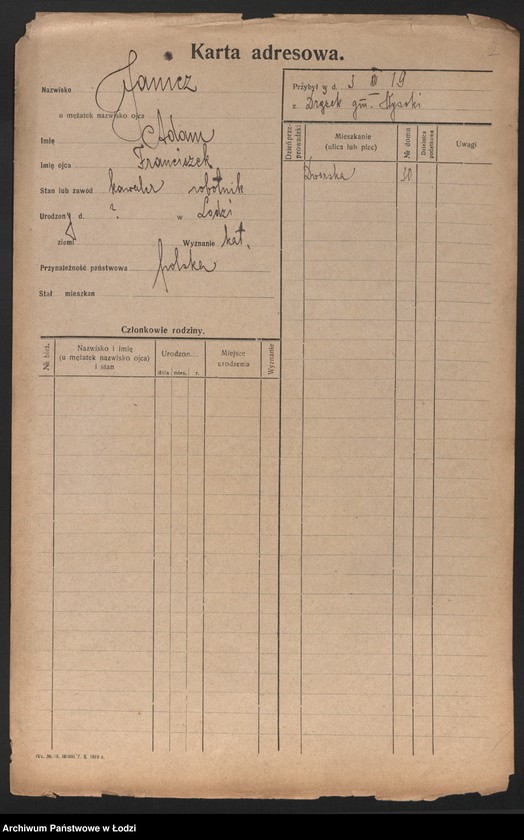 Karta adresowa.
Nazwisko Janicz
u mężatek nazwisko ojca
Imię Adam
Imię ojca Franciszek
Stan lub zawód kawaler robotnik
Urodzony d. ? w Łodzi
ziemi Wyznanie kat.
Przynależność państwowa polska
Stał mieszkan
Przybył y d. 3 19
z gm.
Dzień przeprowadzki
Mieszkanie
(ulica lub plac)
№ domu
Dzielnica podatkowa
Uwagi
Dworska 30
Członkowie rodziny.
№ bież.
Nazwisko i imię
(u mężatek nazwisko ojca)
i stan
Urodzon
dnia mies. r.
Miejsce
urodzenia
Wyznanie
Archiwum Państwowe w Łodzi